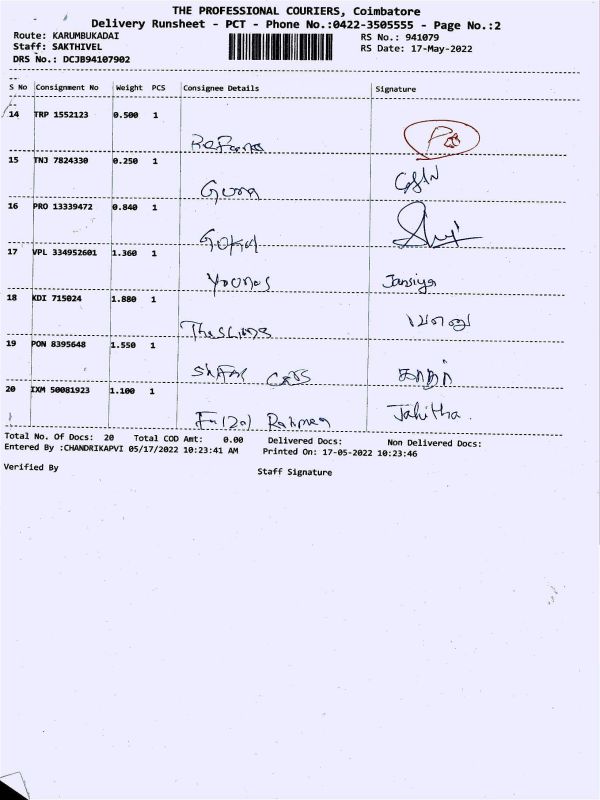 THE PROFESSIONAL COURIERS, Coimbatore
Delivery Runsheet - PCT - Phone No.:0422-3505555 - Page No.:2
Route: KARUMBUKADAI RS No.: 941079
Staff: SAKTHIVEL RS Date: 17-May-2022
DRS No.: DCJB94107902
S No Consignment No Weight PCS Consignee Details Signature
14 TRP 1552123 0.500 1
15 TNJ 7824330 0.250 1
Guna
16 PRO 13339472 0.840 1
Gokul
17 VPL 334952601 1.360 1
Younas Jansiya
18 KDI 715024 1.880 1
Thaslima
19 PON 8395648 1.550 1
20 IXM 50081923 1.100 1
Rahman Jahitha.
Total No. Of Docs: 20 Total COD Amt: 0.00 Delivered Docs: Non Delivered Docs:
Entered By :CHANDRIKAPVI 05/17/2022 10:23:41 AM Printed On: 17-05-2022 10:23:46
Verified By Staff Signature